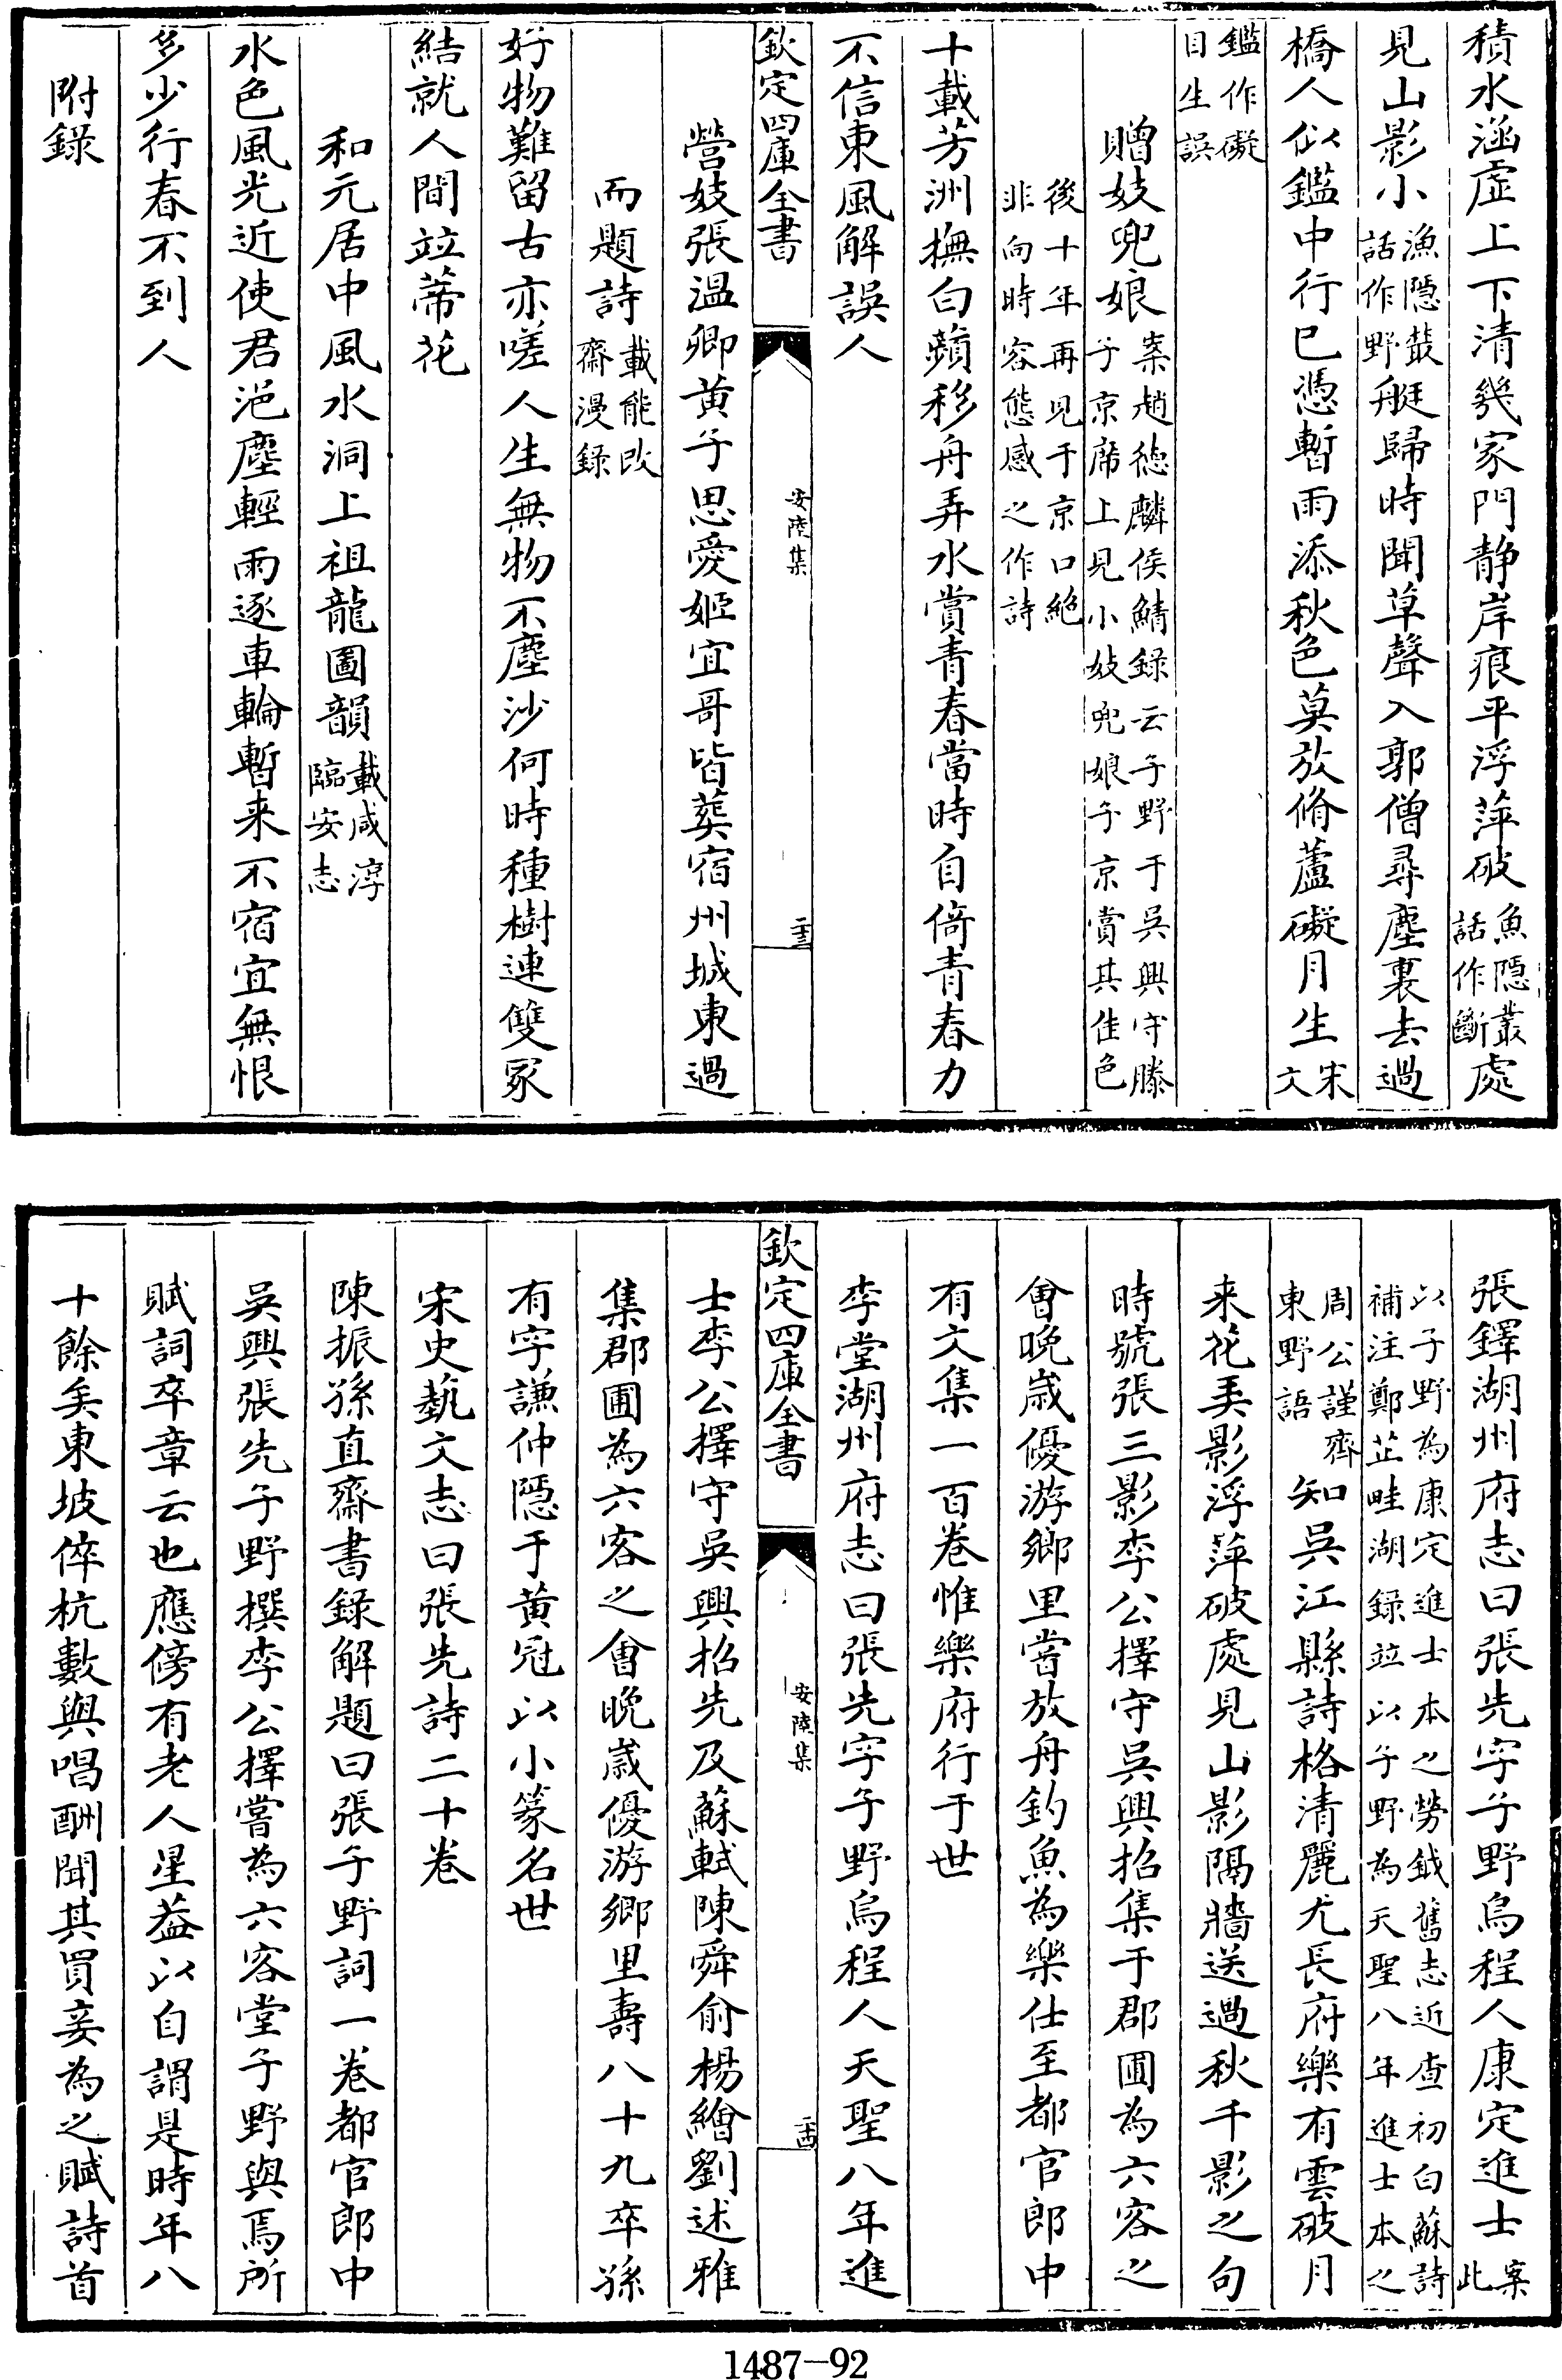 積水涵虛上下清幾家門静岸痕平浮萍破魚隱叢話作斷處
見山影小漁隱叢話作野艇歸時聞草聲入郭僧尋塵裏去過
橋人似鑑中行已憑暫雨添秋色莫放脩蘆礙月生宋文
鑑作礙目生誤
贈妓兜娘案趙徳麟侯鯖録云子野于吳興守滕子京席上見小妓兜娘子京賞其佳色
後十年再見于京口絶非向時容態感之作詩
十載芳洲撫白蘋移舟弄水賞青春當時自倚青春力
不信東風解誤人
欽定四庫全書
安陸集
二十三
營妓張温卿黄子思愛姬宜哥皆葬宿州城東過
而題詩載能改齋漫録
好物難留古亦嗟人生無物不塵沙何時種樹連雙冢
結就人間竝蒂花
和元居中風水洞上祖龍圖韻載咸淳臨安志
水色風光近使君浥塵輕雨逐車輪暫来不宿宜無恨
多少行春不到人
附録
張鐸湖州府志曰張先字子野烏程人康定進士案此
以子野為康定進士本之勞鉞舊志近查初白蘇詩補注鄭芷畦湖録竝以子野為天聖八年進士本之
周公謹齊東野語知吳江縣詩格清麗尤長府樂有雲破月
来花弄影浮萍破處見山影隔牆送過秋千影之句
時號張三影李公擇守吳興招集于郡圃為六客之
會晩歳優游鄉里嘗放舟釣魚為樂仕至都官郎中
有文集一百卷惟樂府行于世
李堂湖州府志曰張先字子野烏程人天聖八年進
欽定四庫全書
安陸集
二十四
士李公擇守吳興招先及蘇軾陳舜俞楊繪劉述雅
集郡圃為六客之會晩歳優游鄉里壽八十九卒孫
有字謙仲隱于黄冠以小篆名世
宋史藝文志曰張先詩二十卷
陳振孫直齋書録解題曰張子野詞一卷都官郎中
吳興張先子野撰李公擇嘗為六客堂子野與焉所
賦詞卒章云也應傍有老人星葢以自謂是時年八
十餘矣東坡倅杭數與唱酬聞其買妾為之賦詩首
1487-92